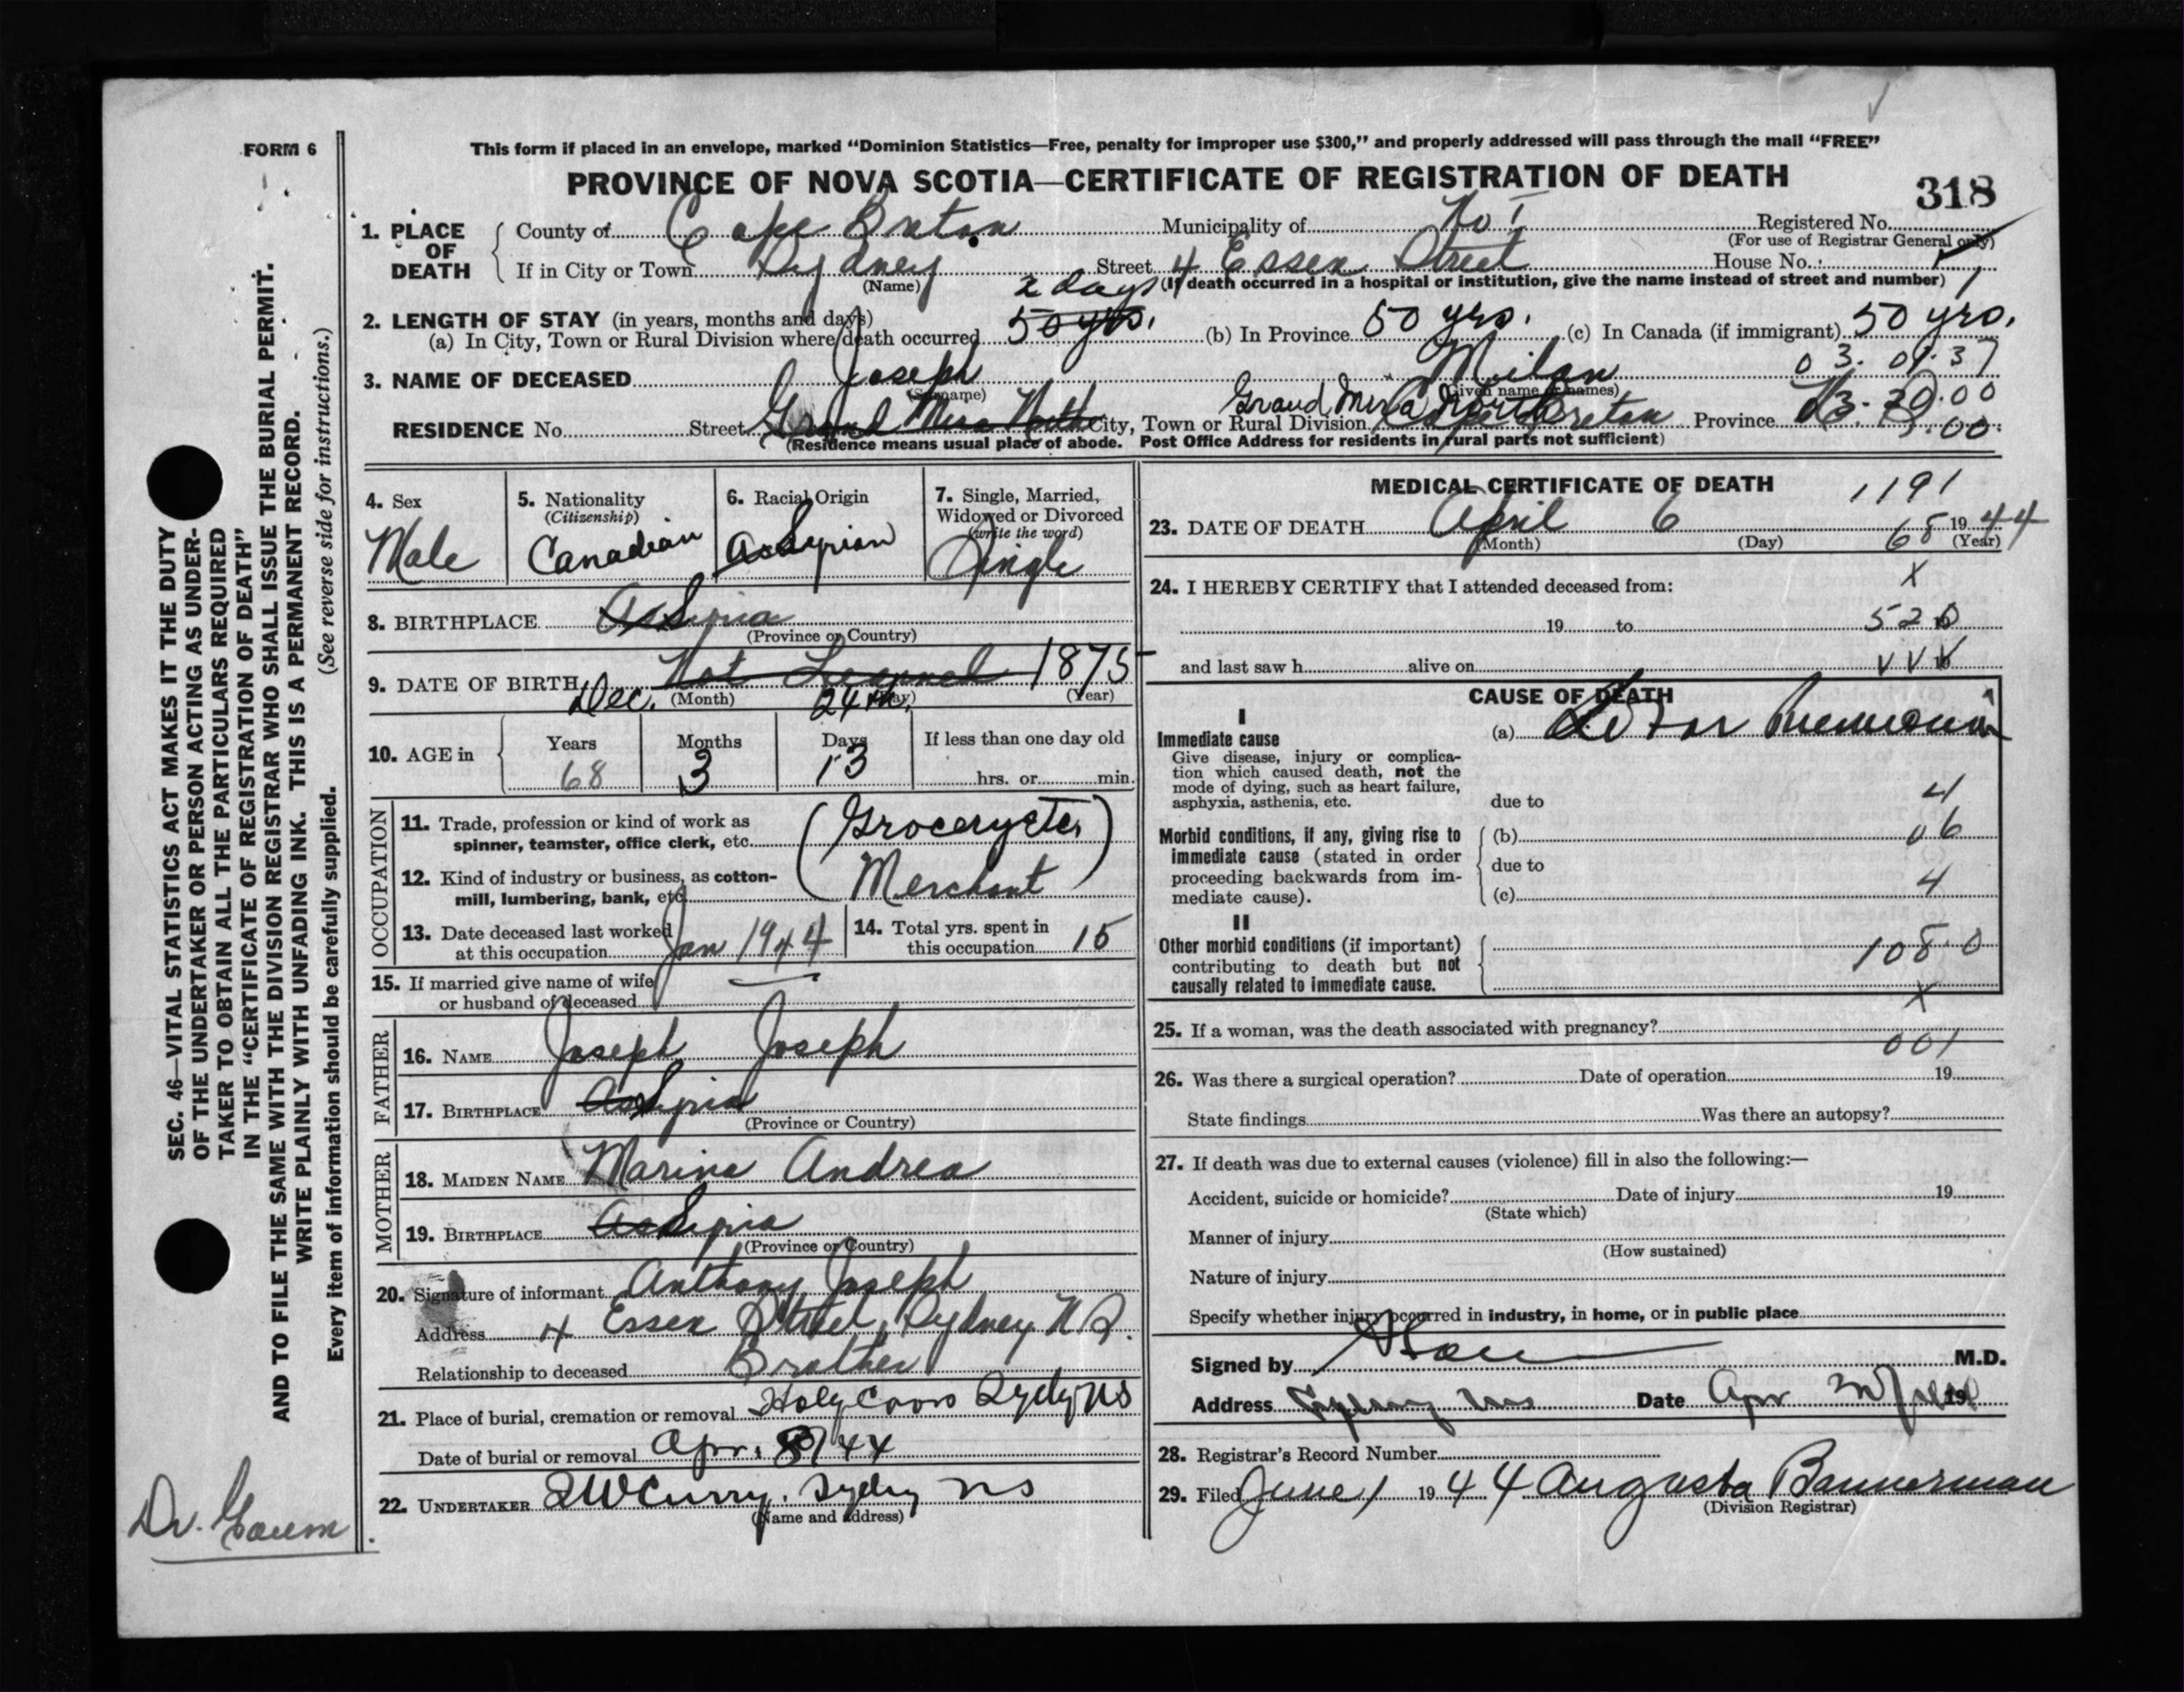 FORM 6
This form if placed in an envelope, marked "Dominion Statistics—Free, penalty for improper use $300," and properly addressed will pass through the mail "FREE"
PROVINCE OF NOVA SCOTIA—CERTIFICATE OF REGISTRATION OF DEATH
318
1. PLACE OF DEATH
County of Cape Breton Municipality of No 1 Registered No.
(For use of Registrar General only)
If in City or Town Sydney Street 4 Essex Street House No.
(Name) (If death occurred in a hospital or institution, give the name instead of street and number)
2 days
2. LENGTH OF STAY (in years, months and days)
(a) In City, Town or Rural Division where death occurred 50 yrs. (b) In Province 50 yrs. (c) In Canada (if immigrant) 50 yrs.
03.01.37
3. NAME OF DECEASED Joseph Milan
(Surname) (Given name or names)
Grand Mira North
RESIDENCE No. Street Grand Mira North City, Town or Rural Division Cape Breton Province
(Residence means usual place of abode. Post Office Address for residents in rural parts not sufficient)
4. Sex
Male
5. Nationality
(Citizenship)
Canadian
6. Racial Origin
AsSyrian
7. Single, Married,
Widowed or Divorced
(write the word)
Single
8. BIRTHPLACE AsSyria
(Province or Country)
9. DATE OF BIRTH Not 1875
Dec. (Month) 24th. (Day) (Year)
10. AGE in
Years 68
Months 3
Days 13
If less than one day old
hrs. or min.
OCCUPATION
11. Trade, profession or kind of work as
spinner, teamster, office clerk, etc. (Grocery etc.)
12. Kind of industry or business, as cotton-
mill, lumbering, bank, etc. Merchant
13. Date deceased last worked
at this occupation Jan 1944
14. Total yrs. spent in
this occupation 15
15. If married give name of wife
or husband of deceased
FATHER
16. NAME Joseph Joseph
17. BIRTHPLACE AsSyria
(Province or Country)
MOTHER
18. MAIDEN NAME Marine Andrea
19. BIRTHPLACE AsSyria
(Province or Country)
20. Signature of informant Anthony Joseph
Address 4 Essex Street, Sydney N.S.
Relationship to deceased Brother
21. Place of burial, cremation or removal Holy Cross Sydney NS
Date of burial or removal Apr. 8/44
22. UNDERTAKER Curry. Sydney NS
(Name and address)
MEDICAL CERTIFICATE OF DEATH
1191
23. DATE OF DEATH April 6 1944
(Month) (Day) (Year)
68
24. I HEREBY CERTIFY that I attended deceased from:
x
19 to
520
and last saw h alive on
CAUSE OF DEATH
I
Immediate cause
Give disease, injury or complica-
tion which caused death, not the
mode of dying, such as heart failure,
asphyxia, asthenia, etc.
(a) Lobar Pneumonia
due to
4
Morbid conditions, if any, giving rise to
immediate cause (stated in order
proceeding backwards from im-
mediate cause).
(b) 06
due to
(c) 4
II
Other morbid conditions (if important)
contributing to death but not
causally related to immediate cause.
108.0
x
25. If a woman, was the death associated with pregnancy?
001
26. Was there a surgical operation? Date of operation 19
State findings Was there an autopsy?
27. If death was due to external causes (violence) fill in also the following:—
Accident, suicide or homicide? Date of injury 19
(State which)
Manner of injury
(How sustained)
Nature of injury
Specify whether injury occurred in industry, in home, or in public place
Signed by M.D.
Address Sydney NS Date Apr 19
28. Registrar's Record Number
29. Filed June 1 1944 Augusta Bannerman
(Division Registrar)
SEC. 46—VITAL STATISTICS ACT MAKES IT THE DUTY
OF THE UNDERTAKER OR PERSON ACTING AS UNDER-
TAKER TO OBTAIN ALL THE PARTICULARS REQUIRED
IN THE "CERTIFICATE OF REGISTRATION OF DEATH"
AND TO FILE THE SAME WITH THE DIVISION REGISTRAR WHO SHALL ISSUE THE BURIAL PERMIT.
WRITE PLAINLY WITH UNFADING INK. THIS IS A PERMANENT RECORD.
Every item of information should be carefully supplied. (See reverse side for instructions.)
Dr.